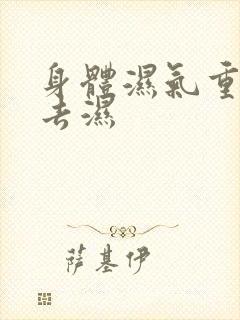 身體濕氣重
去濕
薩基伊